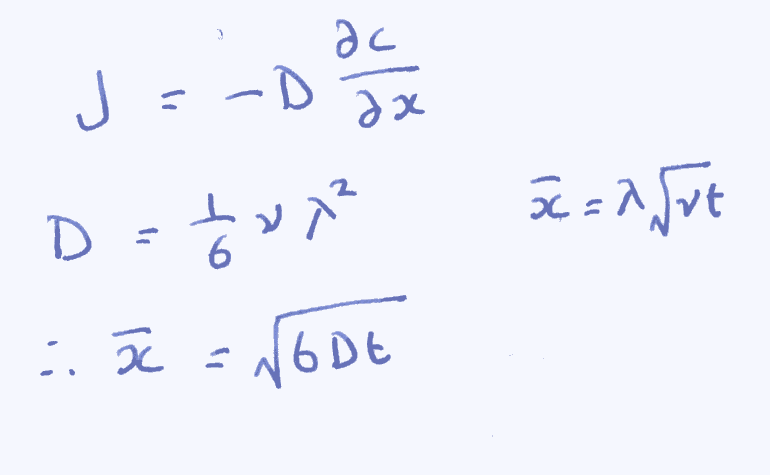 J = -D ∂c/∂x
D = 1/6 ν λ² x̄ = λ√νt
∴ x̄ = √6Dt